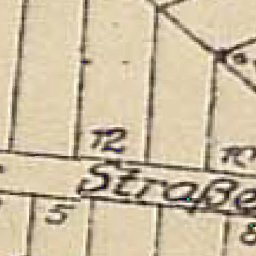 12
10
Straße
5
8